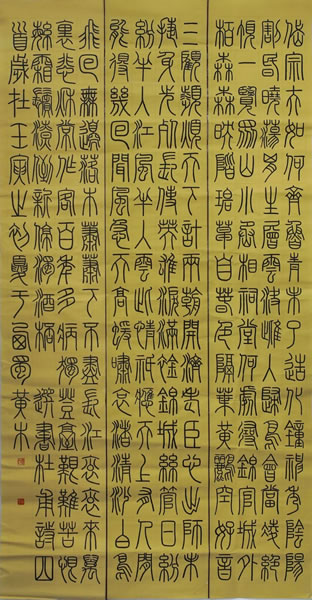 岱宗夫如何齊魯青未了造化鐘神秀陰陽
割昏曉蕩胸生層雲決眥入歸鳥會當凌絕
頂一覽眾山小丞相祠堂何處尋錦官城外
柏森森映階碧草自春色隔葉黃鸝空好音
三顧頻煩天下計兩朝開濟老臣心出師未
捷身先死長使英雄淚滿襟錦城絲管日紛
紛半入江風半入雲此曲祇應天上有人間
能得幾回聞風急天高猿嘯哀渚清沙白鳥
飛回無邊落木蕭蕭下不盡長江滾滾來萬
里悲秋常作客百年多病獨登臺艱難苦恨
繁霜鬢潦倒新停濁酒杯 選書杜甫詩四
首歲在壬寅之初夏于西蜀黃木